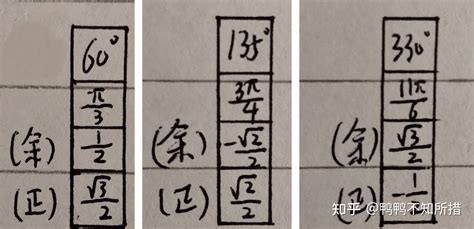 60°
π/3
(余) 1/2
(正) √3/2
135°
3π/4
(余) -√2/2
(正) √2/2
330°
11π/6
(余) √3/2
(正) -1/2
知乎 @鸭鸭不知所措